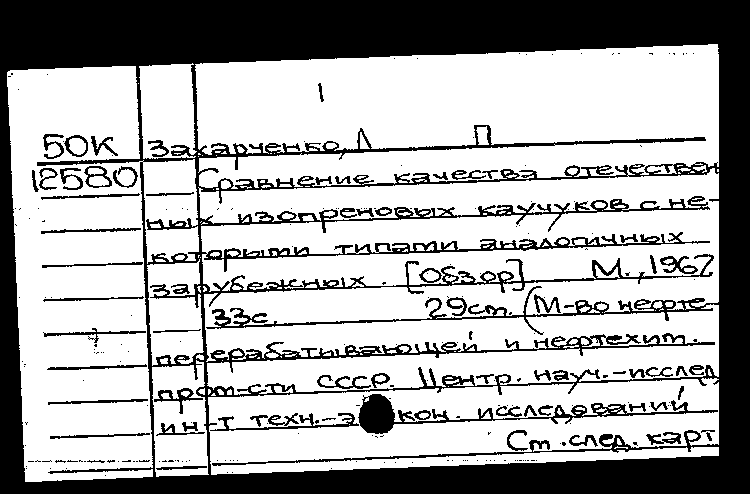 1
50К Захарченко, Л П
12580 Сравнение качества отечествен
ных изопреновых каучуков с не-
которыми типами аналогичных
зарубежных. [Обзор] М., 1967
33с. 29см. (М-во нефте-
перерабатывающей и нефтехим.
пром-сти СССР. Центр. науч.-исслед
ин-т техн.-экон. исследований
См. след. карт